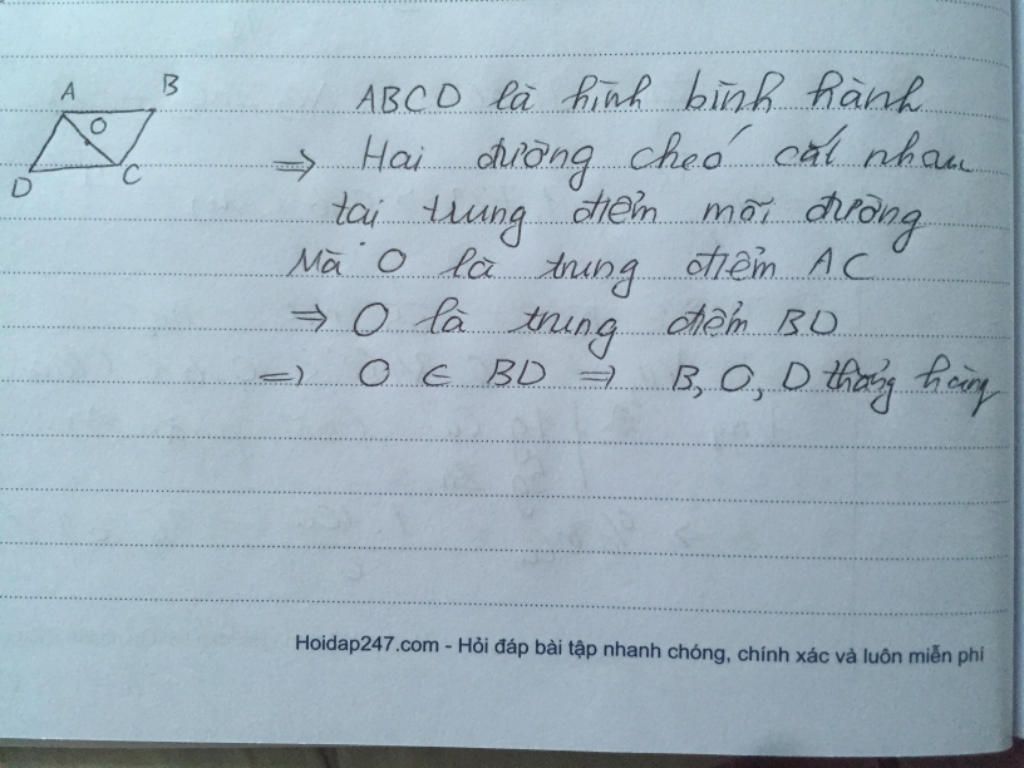 A B
O
D C
ABCD là hình bình hành
=> Hai đường chéo cắt nhau
tại trung điểm mỗi đường
Mà O là trung điểm AC
=> O là trung điểm BD
=> O ∈ BD => B, O, D thẳng hàng
Hoidap247.com - Hỏi đáp bài tập nhanh chóng, chính xác và luôn miễn phí